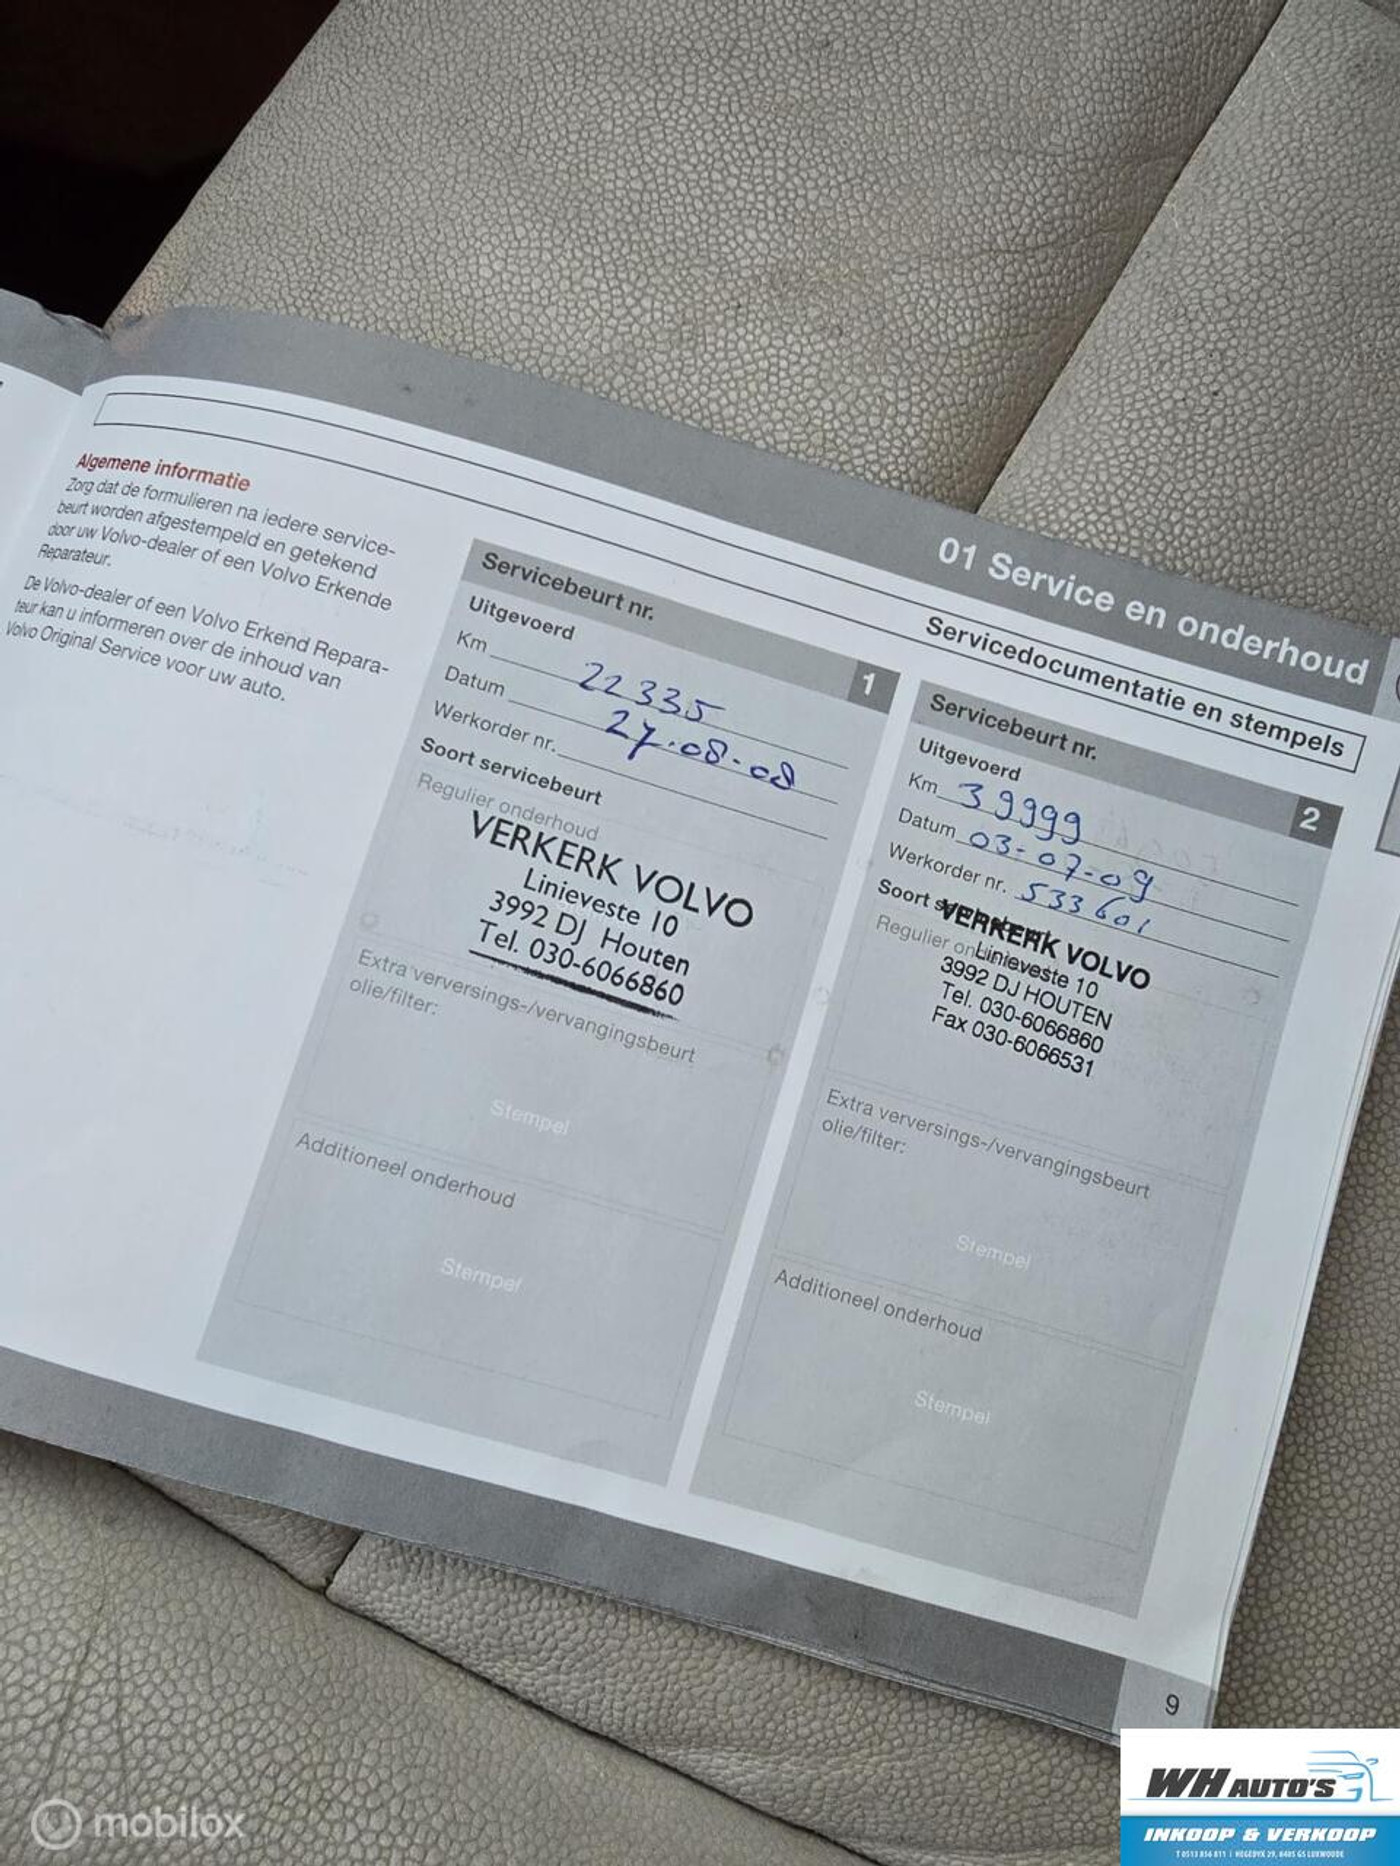 01 Service en onderhoud
Servicedocumentatie en stempels
Algemene informatie
Zorg dat de formulieren na iedere service-
beurt worden afgestempeld en getekend
door uw Volvo-dealer of een Volvo Erkende
Reparateur.
De Volvo-dealer of een Volvo Erkend Repara-
teur kan u informeren over de inhoud van
Volvo Original Service voor uw auto.
Servicebeurt nr. 1
Uitgevoerd
Km 22335
Datum 27-08-08
Werkorder nr.
Soort servicebeurt
Regulier onderhoud
VERKERK VOLVO
Linieveste 10
3992 DJ Houten
Tel. 030-6066860
Extra verversings-/vervangingsbeurt
olie/filter:
Stempel
Additioneel onderhoud
Stempel
Servicebeurt nr. 2
Uitgevoerd
Km 39999
Datum 03-07-09
Werkorder nr. 533601
Soort
Regulier
VERKERK VOLVO
Linieveste 10
3992 DJ HOUTEN
Tel. 030-6066860
Fax 030-6066531
Extra verversings-/vervangingsbeurt
olie/filter:
Stempel
Additioneel onderhoud
Stempel
9
mobilox
WH AUTO'S
INKOOP & VERKOOP
T 0513 856 811 | HEGEDYK 29, 8405 GS LUXWOUDE